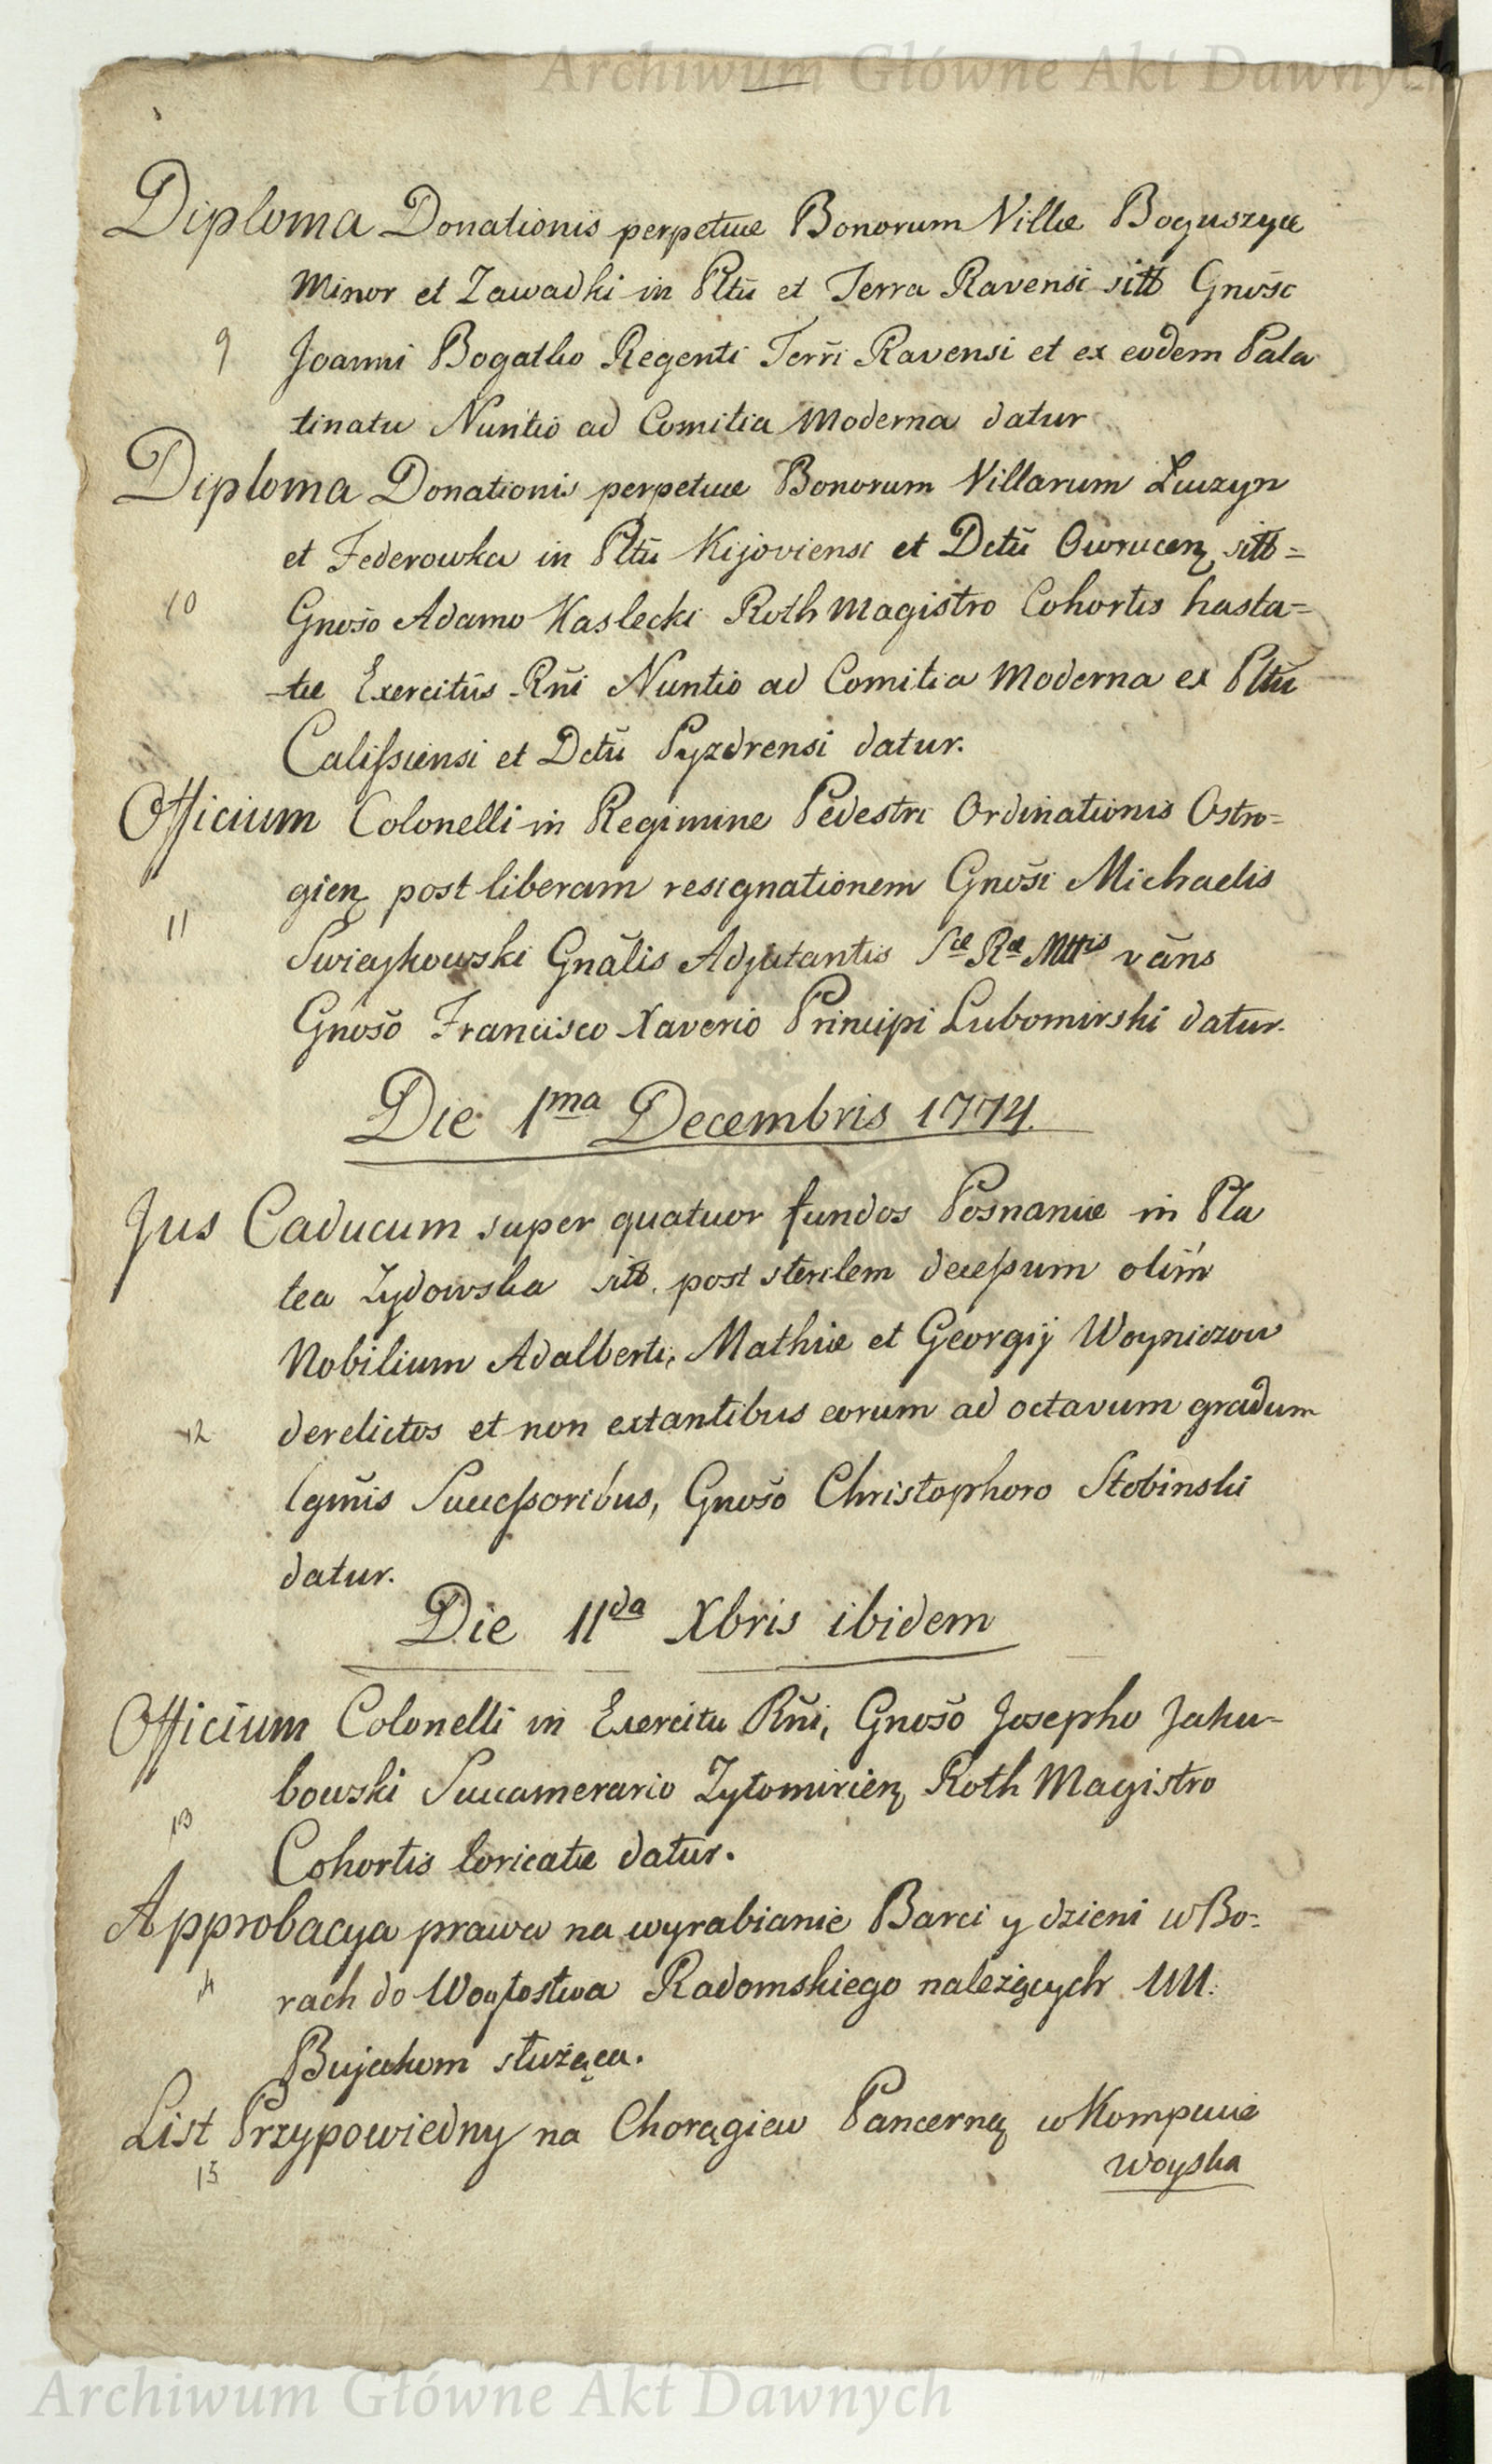 Archiwum Główne Akt Dawnych
Diploma Donationis perpetuæ Bonorum Villæ Boguszyce
Minor et Zawadki in Pltũ et Terra Ravensi sitt Gnõso
9 Joanni Bogatko Regenti Terri Ravensi et ex eodem Pala
tinatu Nuntio ad Comitia Moderna datur
Diploma Donationis perpetuæ Bonorum Villarum
et Federowka in Pltũ Kijoviensi et Dctũ Owrucen sitt=
10 Gnõso Adamo Kaslecki Roth Magistro Cohortis hasta=
tæ Exercitũs Rñi Nuntio ad Comitia Moderna ex Pltũ
Calissiensi et Dctũ Pyzdrensi datur.
Officium Colonelli in Regimine Pedestri Ordinationis Ostro=
gien post liberam resignationem Gnõsi Michaelis
11 Swieykowski Gnãlis Adjutantis Sæ Ræ Mttis vãns
Gnõso Francisco Xaverio Principi Lubomirski datur.
Die 1ma Decembris 1774.
Jus Caducum super quatuor fundos Posnaniæ in Pla
tea Zydowska sitt. post sterilem decessum olim
Nobilium Adalberti, Mathiæ et Georgij Woyniczow
12 derelictos et non extantibus eorum ad octavum gradum
lgmis Successoribus, Gnõso Christophoro Stobinski
datur.
Die 11da Xbris ibidem
Officium Colonelli in Exercitu Rñi, Gnõso Josepho Jaku-
bowski Succamerario Zytomirien Roth Magistro
13 Cohortis loricatæ datur.
Approbacya prawa na wyrabianie Barci y dzieni w Bo=
14 rach do Woytostwa Radomskiego należących UU.
Bujakom służąca.
List Przypowiedny na Chorągiew Pancerną w Kompucie
15 Woyska
Archiwum Główne Akt Dawnych